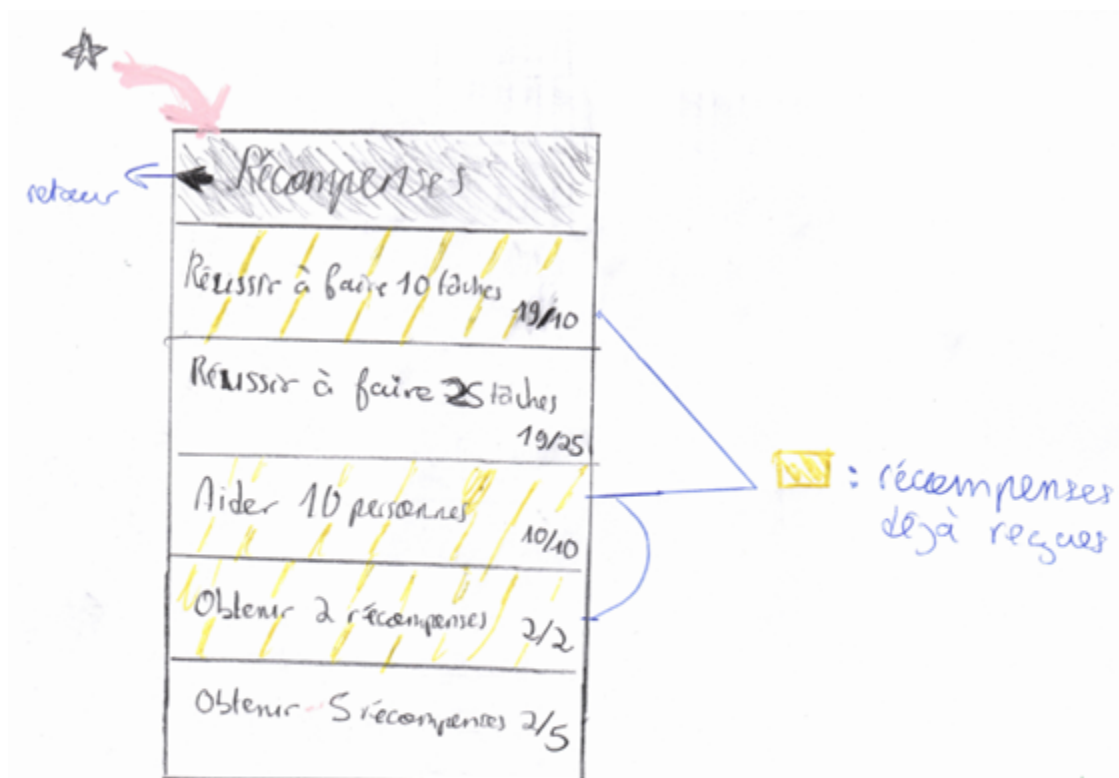 Récompenses
retour
Réussir à faire 10 tâches
19/10
Réussir à faire 25 tâches
19/25
Aider 10 personnes
10/10
Obtenir 2 récompenses 2/2
Obtenir 5 récompenses 2/5
: récompenses
déjà reçues